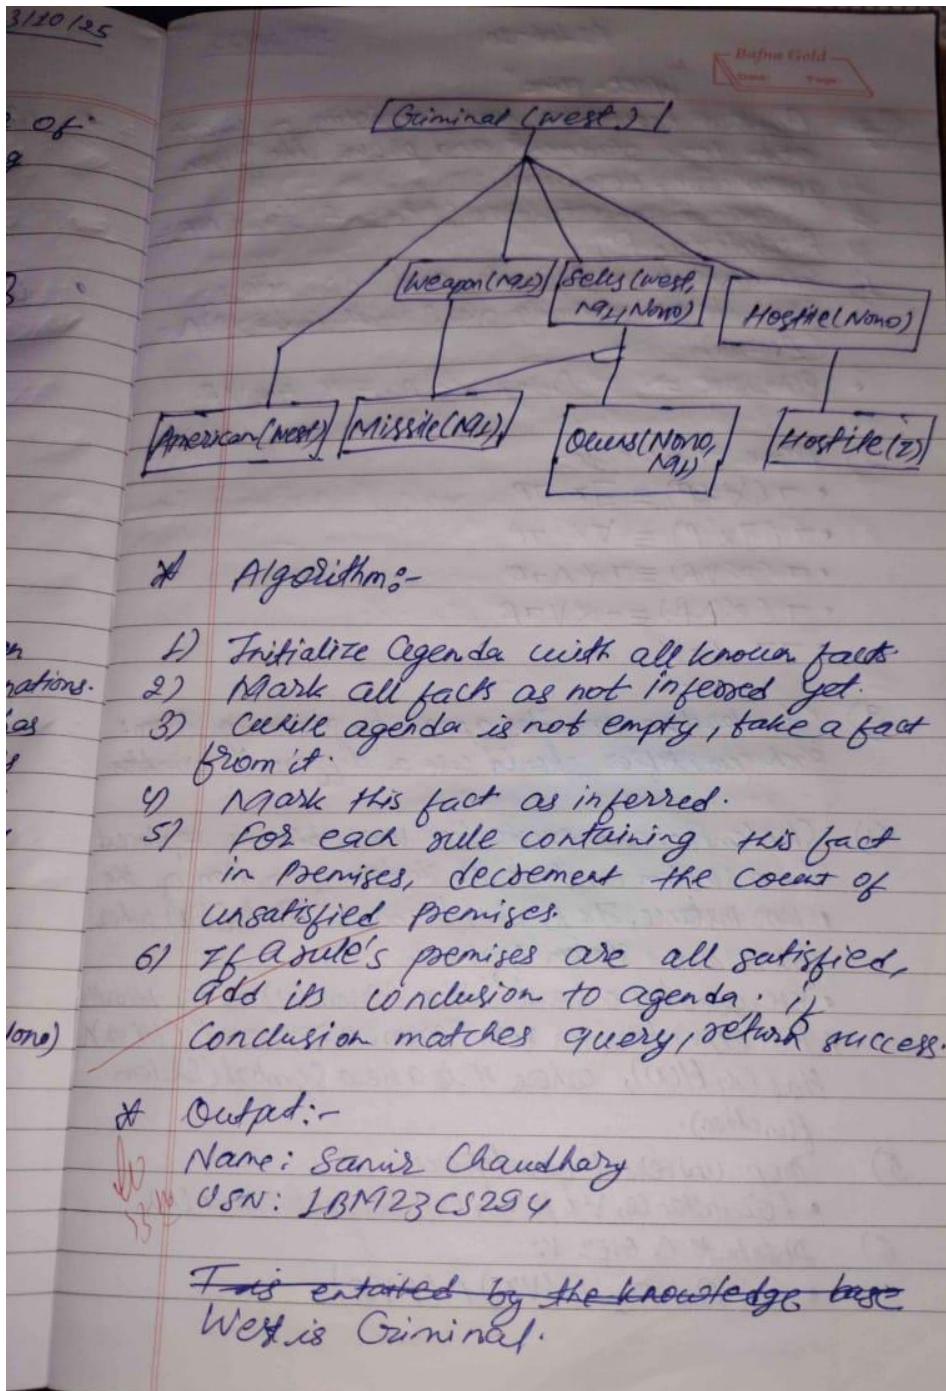 3/10/25
Bafna Gold
Date: Page:
of
Criminal (west)
Weapon(M1) Sells(west,
M1, Nono)
Hostile(Nono)
American(west) Missile(M1)
Owns(Nono,
M1)
Hostile(z)
* Algorithm:-
1) Initialize Agenda with all known facts.
2) Mark all facts as not inferred yet.
nations.
3) While agenda is not empty, take a fact
as
from it.
4) Mark this fact as inferred.
5) For each rule containing this fact
in Premises, decrement the count of
unsatisfied premises.
6) If a rule's premises are all satisfied,
add its conclusion to agenda. if
Conclusion matches query, return success.
lono)
* Output:-
Name: Samir Chaudhary
USN: 1BM23CS294
This entailed by the knowledge base
West is Criminal.